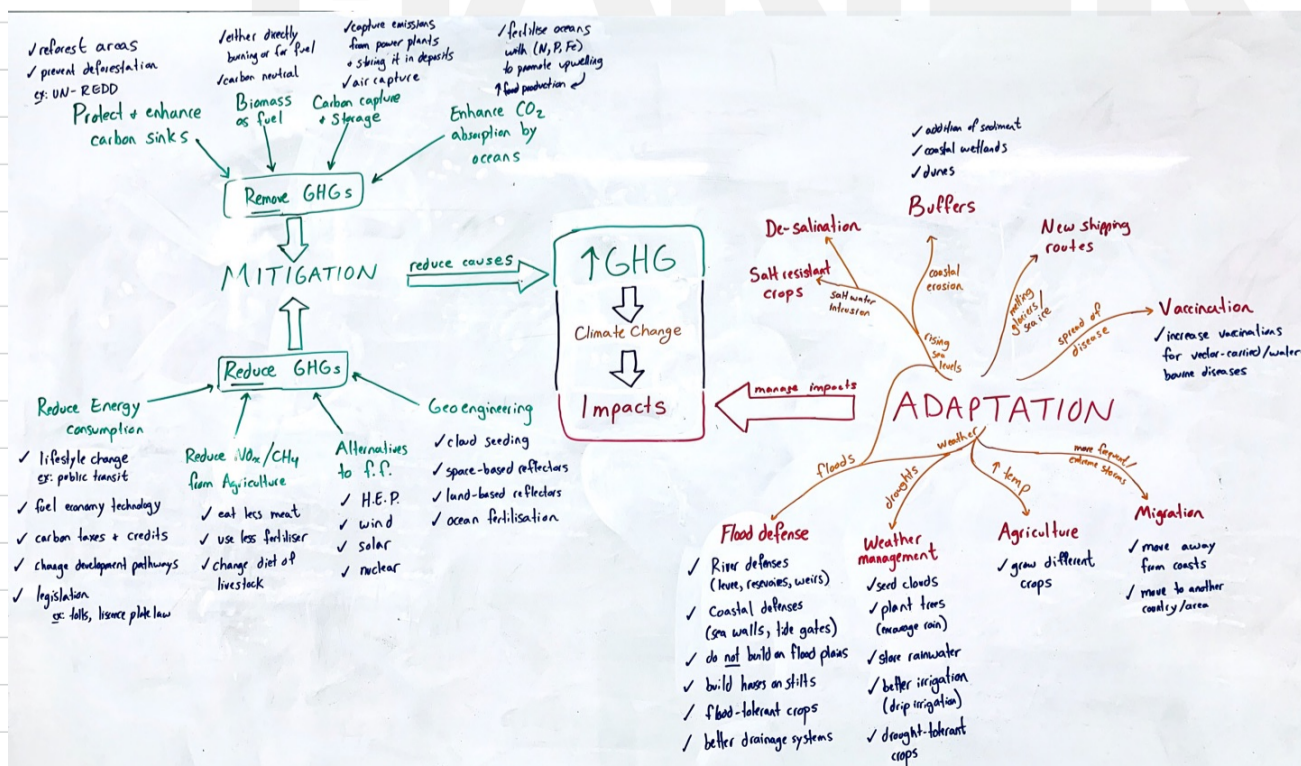 ✓ reforest areas
✓ prevent deforestation
ex: UN-REDD
Protect + enhance
carbon sinks
✓ either directly
burning or for fuel
✓ carbon neutral
Biomass
as fuel
✓ capture emissions
from power plants
+ storing it in deposits
✓ air capture
Carbon capture
+ Storage
✓ fertilise oceans
with (N, P, Fe)
to promote upwelling
↑ food production ↵
Enhance CO₂
absorption by
oceans
Remove GHGs
MITIGATION
reduce causes
Reduce GHGs
Reduce Energy
consumption
✓ lifestyle change
ex: public transit
✓ fuel economy technology
✓ carbon taxes + credits
✓ change development pathways
✓ legislation
ex: tolls, liscence plate law
Reduce NOx/CH4
from Agriculture
✓ eat less meat
✓ use less fertiliser
✓ change diet of
livestock
Alternatives
to f.f.
✓ H.E.P.
✓ wind
✓ solar
✓ nuclear
Geoengineering
✓ cloud seeding
✓ space-based reflectors
✓ land-based reflectors
✓ ocean fertilisation
↑GHG
Climate Change
Impacts
manage impacts
ADAPTATION
✓ addition of sediment
✓ coastal wetlands
✓ dunes
Buffers
De-salination
Salt resistant
crops
salt water
intrusion
coastal
erosion
rising
sea
levels
New shipping
routes
melting
glaciers/
sea ice
spread of
disease
Vaccination
✓ increase vaccinations
for vector-carried/water
bourne diseases
weather
floods
droughts
↑ temp
more frequent/
extreme storms
Flood defense
✓ River defenses
(levee, resevoies, weirs)
✓ Coastal defenses
(sea walls, tide gates)
✓ do not build on flood plains
✓ build houses on stilts
✓ flood-tolerant crops
✓ better drainage systems
Weather
management
✓ seed clouds
✓ plant trees
(encourage rain)
✓ store rainwater
✓ better irrigation
(drip irrigation)
✓ drought-tolerant
crops
Agriculture
✓ grow different
crops
Migration
✓ move away
from coasts
✓ move to another
country/area